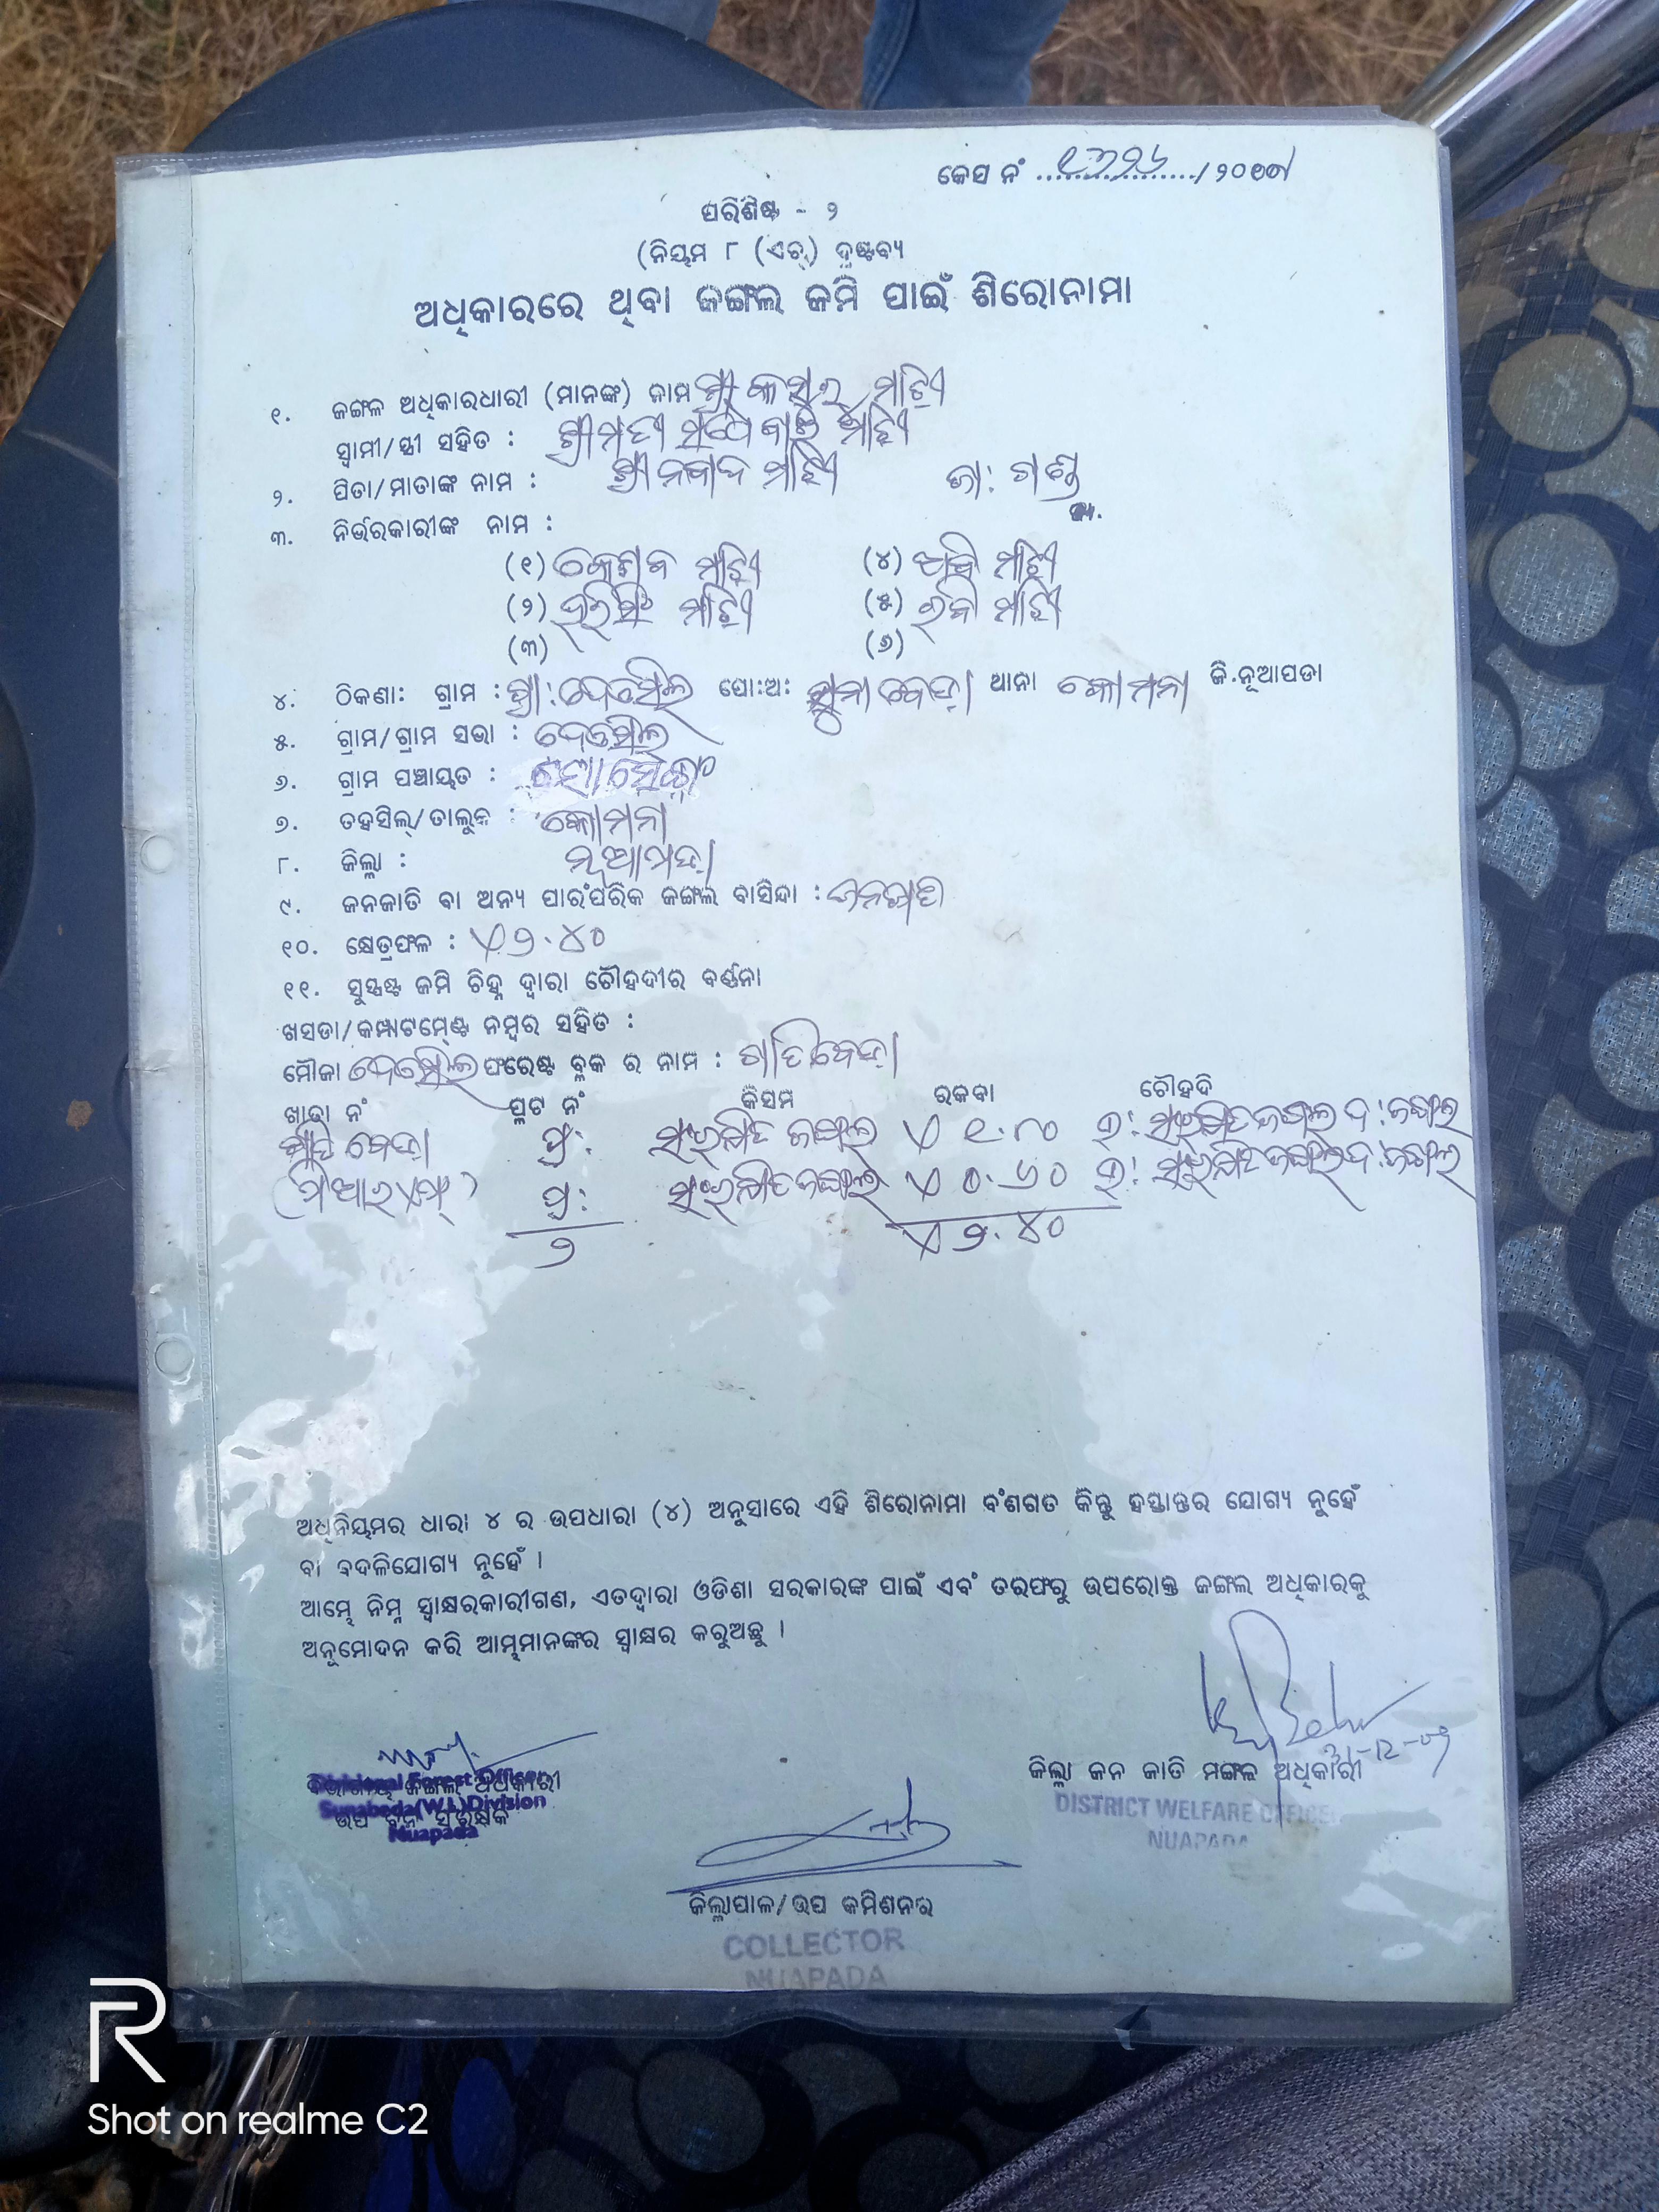 କେସ ନଂ ୧୩୨୬ /୨୦୧୩
ପରିଶିଷ୍ଟ - ୨
(ନିୟମ ୮ (ଏଚ୍) ଦ୍ରଷ୍ଟବ୍ୟ
ଅଧିକାରରେ ଥିବା ଜଙ୍ଗଲ ଜମି ପାଇଁ ଶିରୋନାମା
୧. ଜଙ୍ଗଳ ଅଧିକାରଧାରୀ (ମାନଙ୍କ) ନାମ ମାଝି
ସ୍ୱାମୀ/ସ୍ତ୍ରୀ ସହିତ : ଶ୍ରୀମତୀ ମାଝି
୨. ପିତା/ମାତାଙ୍କ ନାମ : ଶ୍ରୀ ମାଝି ଜା: ଗଣ୍ଡ
୩. ନିର୍ଭରକାରୀଙ୍କ ନାମ :
(୧) କେଶବ ମାଝି (୪) ମାଝି
(୨) ହରିସିଂ ମାଝି (୫) ମାଝି
(୩) (୬)
୪. ଠିକଣା: ଗ୍ରାମ : ଗ୍ରା: ପୋ:ଅ: ସୁନାବେଡ଼ା ଥାନା କୋମନା ଜି.ନୂଆପଡା
୫. ଗ୍ରାମ/ଗ୍ରାମ ସଭା :
୬. ଗ୍ରାମ ପଞ୍ଚାୟତ :
୭. ତହସିଲ୍/ତାଲୁକ : କୋମନା
୮. ଜିଲ୍ଲା : ନୂଆପଡ଼ା
୯. ଜନଜାତି ବା ଅନ୍ୟ ପାରଂପରିକ ଜଙ୍ଗଲ ବାସିନ୍ଦା : ଜନଜାତି
୧୦. କ୍ଷେତ୍ରଫଳ : ଏ ୨.୪୦
୧୧. ସୁସ୍ପଷ୍ଟ ଜମି ଚିହ୍ନ ଦ୍ୱାରା ଚୌହଦୀର ବର୍ଣ୍ଣନା
ଖସଡା/କମ୍ପାଟମେଣ୍ଟ ନମ୍ବର ସହିତ :
ମୌଜା ଫରେଷ୍ଟ ବ୍ଲକ ର ନାମ : ଗାତିବେଡ଼ା
ଖାତା ନଂ ପ୍ଲଟ ନଂ କିସମ ରକବା ଚୌହଦି
ବେଡ଼ା ପ୍ର: ସଂରକ୍ଷିତ ଜଙ୍ଗଲ ଏ ୧.୮୦ ଉ: ସଂରକ୍ଷିତ ଜଙ୍ଗଲ ଦ: ଜଙ୍ଗଲ
(ପିଆରଏଫ୍) ପ୍ର: ସଂରକ୍ଷିତ ଜଙ୍ଗଲ ଏ ୦.୬୦ ଉ: ସଂରକ୍ଷିତ ଜଙ୍ଗଲ ଦ: ଜଙ୍ଗଲ
୨ ଏ ୨.୪୦
ଅଧିନିୟମର ଧାରା ୪ ର ଉପଧାରା (୪) ଅନୁସାରେ ଏହି ଶିରୋନାମା ବଂଶଗତ କିନ୍ତୁ ହସ୍ତାନ୍ତର ଯୋଗ୍ୟ ନୁହେଁ
ବା ବଦଳିଯୋଗ୍ୟ ନୁହେଁ ।
ଆମ୍ଭେ ନିମ୍ନ ସ୍ୱାକ୍ଷରକାରୀଗଣ, ଏତଦ୍ୱାରା ଓଡିଶା ସରକାରଙ୍କ ପାଇଁ ଏବଂ ତରଫରୁ ଉପରୋକ୍ତ ଜଙ୍ଗଲ ଅଧିକାରକୁ
ଅନୁମୋଦନ କରି ଆମ୍ଭମାନଙ୍କର ସ୍ୱାକ୍ଷର କରୁଅଛୁ ।
31-12-09
ବିଭାଗୀୟ ଜଙ୍ଗଲ ଅଧିକାରୀ
Divisional Forest Officer
Sunabeda(W.L)Division
ଉପ ବନ ସଂରକ୍ଷକ
Nuapada
ଜିଲ୍ଲା ଜନ ଜାତି ମଙ୍ଗଳ ଅଧିକାରୀ
DISTRICT WELFARE OFFICER
NUAPADA
ଜିଲ୍ଲାପାଳ/ଉପ କମିଶନର
COLLECTOR
NUAPADA
R
Shot on realme C2